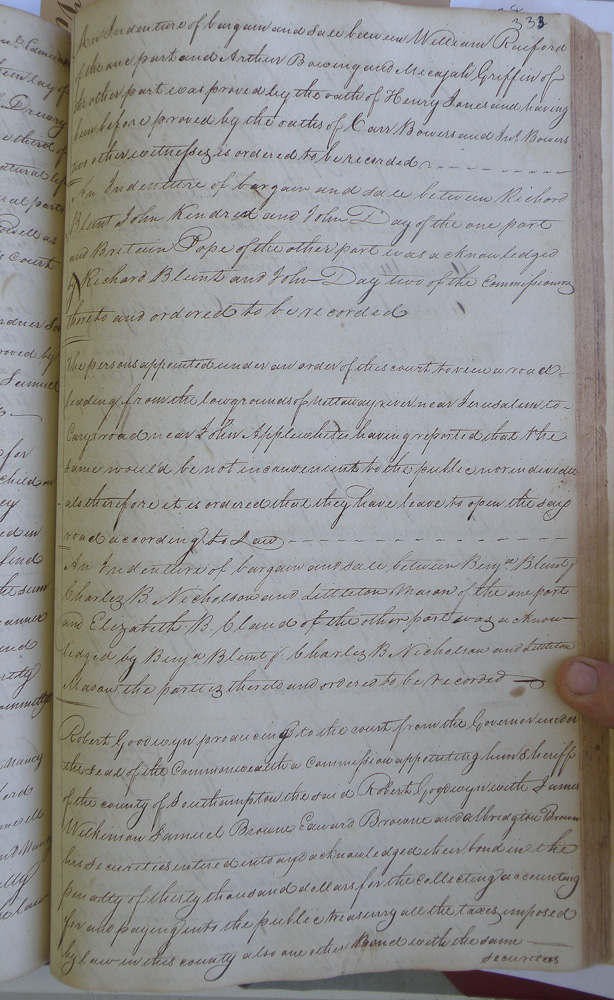 333
An Indenture of bargain and sale between William Raiford
of the one part and Arthur Bowing and Micajah Griffin of
the other part was proved by the oath of Henry Jones and having
been before proved by the oaths of Carr Bowers and Jno. Bowers
two other witnesses is ordered to be recorded
An Indenture of bargain and sale between Richard
Blunt John Kindred and John Day of the one part
and Britain Pope of the other part was acknowledged
by Richard Blunt and John Day two of the Commissioners
thereto and ordered to be recorded
The persons appointed under an order of this court to view a road
leading from the lowgrounds of nottoway river near Jerusalem to
Carys road near John Applewhites having reported that the
same would be not inconvenient to the public nor individu
als therefore it is ordered that they have leave to open the said
road according to Law
An Indenture of bargain and sale between Benja Blunt
Charles B. Nicholson and Littleton Mason of the one part
and Elizabeth B. Claud of the other part was acknow
ledged by Benja Blunt Charles B Nicholson and Littleton
Mason the parties thereto and ordered to be recorded
Robert Goodwyn producing to the court from the Governor under
the seal of the Commonwealth a Commission appointing him sheriff
of the county of Southampton the said Robert Goodwyn with James
Wilkinson Samuel Browne Edward Browne and albridgton Brown
his securities entered into and acknowledged their bond in the
penalty of thirty thousand dollars for the collecting accounting
for and paying into the public treasurry all the taxes imposed
by law in this county also one other Bond with the same
securities